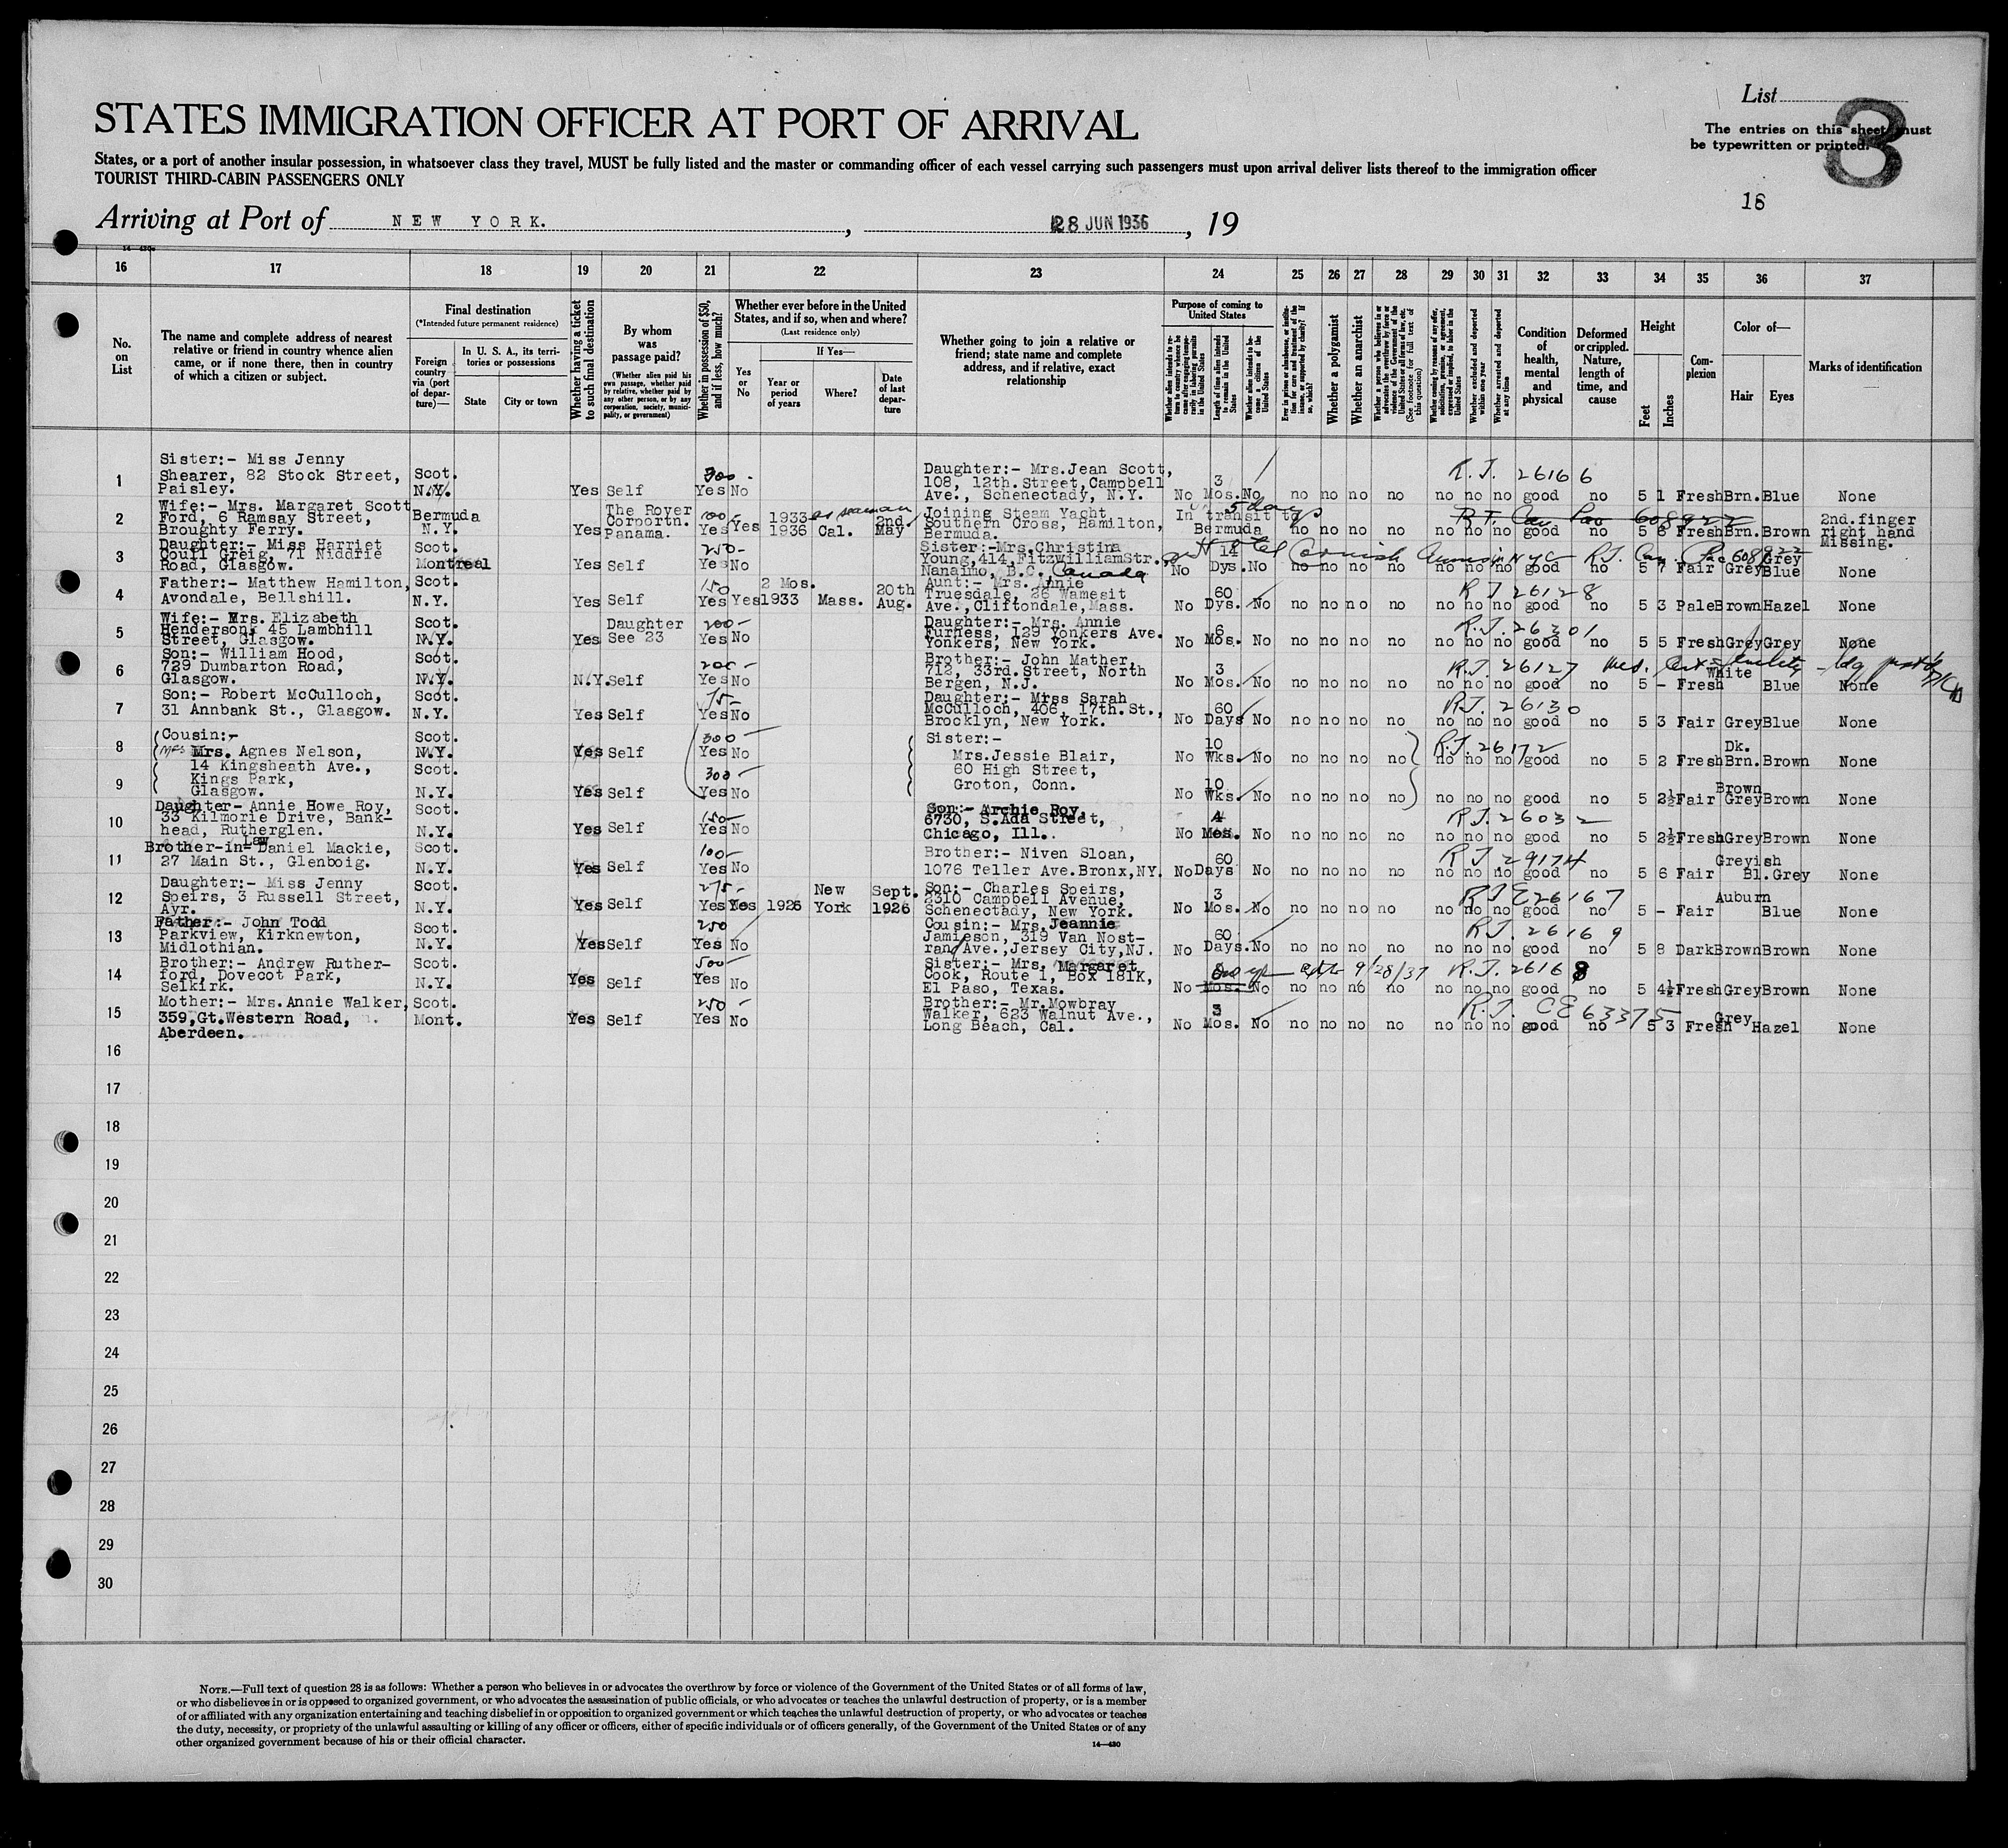 List
3
The entries on this sheet must
be typewritten or printed.
16
STATES IMMIGRATION OFFICER AT PORT OF ARRIVAL
States, or a port of another insular possession, in whatsoever class they travel, MUST be fully listed and the master or commanding officer of each vessel carrying such passengers must upon arrival deliver lists thereof to the immigration officer
TOURIST THIRD-CABIN PASSENGERS ONLY
Arriving at Port of NEW YORK. , 28 JUN 1936 , 19
16 17 18 19 20 21 22 23 24 25 26 27 28 29 30 31 32 33 34 35 36 37
No. on List
The name and complete address of nearest
relative or friend in country whence alien
came, or if none there, then in country
of which a citizen or subject.
Final destination
(*Intended future permanent residence)
Foreign country via (port of departure)—
In U. S. A., its territories or possessions
State
City or town
Whether having a ticket to such final destination
By whom was passage paid?
(Whether alien paid his own passage, whether paid by relative, whether paid by any other person, or by any corporation, society, municipality, or government)
Whether in possession of $50, and if less, how much?
Whether ever before in the United States, and if so, when and where?
(Last residence only)
Yes or No
If Yes—
Year or period of years
Where?
Date of last departure
Whether going to join a relative or
friend; state name and complete
address, and if relative, exact
relationship
Purpose of coming to United States
Length of time alien intends to remain in the United States
Whether alien intends to become a citizen of the United States
Whether a polygamist
Whether an anarchist
(See footnote for full text of this question)
Whether excluded and deported within one year
Whether arrested and deported at any time
Condition of health, mental and physical
Deformed or crippled. Nature, length of time, and cause
Height
Feet
Inches
Complexion
Color of—
Hair
Eyes
Marks of identification
1 Sister:- Miss Jenny
Shearer, 82 Stock Street,
Paisley.
Scot. N.Y. Yes Self 300 Yes No
Daughter:- Mrs.Jean Scott,
108, 12th.Street,Campbell
Ave., Schenectady, N.Y.
No 3 Mos. No no no no no no no no good no 5 1 Fresh Brn. Blue None
R.J. 26166
2 Wife:- Mrs. Margaret Scott
Ford, 6 Ramsay Street,
Broughty Ferry.
Bermuda N.Y. Yes The Royer Corportn. Panama. 100 Yes Yes 1933 1936 as seaman Cal. 2nd. May
Joining Steam Yacht
Southern Cross, Hamilton,
Bermuda.
In transit to Bermuda 5 days no no no no no no no good no 5 8 Fresh Brn. Brown
2nd.finger
right hand
Missing.
3 Daughter:- Miss Harriet
Coull Greig, 71 Niddrie
Road, Glasgow.
Scot. Montreal Yes Self 250 Yes No
Sister:-Mrs.Christina
Young,414,FitzwilliamStr.,
Nanaimo, B.C. Canada
No 14 Dys. No no no no no no no no good no 5 7 Fair Grey Grey Blue None
4 Father:- Matthew Hamilton,
Avondale, Bellshill.
Scot. N.Y. Yes Self 150 Yes Yes 2 Mos. 1933 Mass. 20th Aug.
Aunt:- Mrs. Annie
Truesdale, 26 Wamesit
Ave.,Cliftondale,Mass.
No 60 Dys. No no no no no no no no good no 5 3 Pale Brown Hazel None
R J 26128
5 Wife:- Mrs. Elizabeth
Henderson, 45 Lambhill
Street, Glasgow.
Scot. N.Y. Yes Daughter See 23 200 Yes No
Daughter:- Mrs. Annie
Furness, 129 Yonkers Ave.
Yonkers, New York.
No 6 Mos. No no no no no no no no good no 5 5 Fresh Grey Grey None
R.J. 26301
6 Son:- William Hood,
729 Dumbarton Road,
Glasgow.
Scot. N.Y. N.Y. Self 200 Yes No
Brother:- John Mather,
712, 33rd.Street, North
Bergen, N.J.
No 3 Mos. No no no no no no no no good no 5 - Fresh White Blue None
R.J. 26127
7 Son:- Robert McCulloch,
31 Annbank St., Glasgow.
Scot. N.Y. Yes Self 75 Yes No
Daughter:- Miss Sarah
McCulloch, 406, 17th.St.,
Brocklyn, New York.
No 60 Days No no no no no no no no good no 5 3 Fair Grey Blue None
R.J. 26130
8 Cousin:-
Mrs. Agnes Nelson,
14 Kingsheath Ave.,
Scot. N.Y. Yes Self 300 Yes No
Sister:-
Mrs.Jessie Blair,
60 High Street,
No 10 Wks. No no no no no no no no good no 5 2 Fresh Dk. Brn. Brown None
R.J. 26172
9 Kings Park,
Glasgow.
Scot. N.Y. Yes Self 300 Yes No
Groton, Conn.
No 10 Wks. No no no no no no no no good no 5 2½ Fair Brown Grey Brown None
10 Daughter- Annie Howe Roy,
33 Kilmorie Drive, Bank-
head, Rutherglen.
Scot. N.Y. Yes Self 150 Yes No
Son:- Archie Roy,
6730, S.Ada Street,
Chicago, Ill.
No 4 Mos. No no no no no no no no good no 5 2½ Fresh Grey Brown None
R.J. 26032
11 Brother-in-Law Daniel Mackie,
27 Main St., Glenboig.
Scot. N.Y. Yes Self 100 Yes No
Brother:- Niven Sloan,
1076 Teller Ave.Bronx,NY.
No 60 Days No no no no no no no no good no 5 6 Fair Greyish Bl.Grey None
R.J. 29174
12 Daughter:- Miss Jenny
Speirs, 3 Russell Street,
Ayr.
Scot. N.Y. Yes Self 275 Yes Yes 1926 New York Sept. 1926
Son:- Charles Speirs,
2310 Campbell Avenue,
Schenectady, New York.
No 3 Mos. No no no no no no no no good no 5 - Fair Auburn Blue None
R J E 26167
13 Father:- John Todd
Parkview, Kirknewton,
Midlothian.
Scot. N.Y. Yes Self 250 Yes No
Cousin:- Mrs.Jeannie
Jamieson, 319 Van Nost-
rand Ave.,Jersey City,NJ.
No 60 Days. No no no no no no no no good no 5 8 Dark Brown Brown None
R.J. 26169
14 Brother:- Andrew Ruther-
ford, Dovecot Park,
Selkirk.
Scot. N.Y. Yes Self 500 Yes No
Sister:- Mrs. Margaret
Cook, Route 1, Box 181K,
El Paso, Texas.
No Mos. No no no no no no no no good no 5 4½ Fresh Grey Brown None
9/28/37 R.J. 26168
15 Mother:- Mrs.Annie Walker,
359,Gt.Western Road,
Aberdeen.
Scot. Mont. Yes Self 250 Yes No
Brother:- Mr.Mowbray
Walker, 623 Walnut Ave.,
Long Beach, Cal.
No 3 Mos. No no no no no no no no good no 5 3 Fresh Grey Hazel None
R.J. CE 63375
16
17
18
19
20
21
22
23
24
25
26
27
28
29
30
NOTE.—Full text of question 28 is as follows: Whether a person who believes in or advocates the overthrow by force or violence of the Government of the United States or of all forms of law,
or who disbelieves in or is opposed to organized government, or who advocates the assassination of public officials, or who advocates or teaches the unlawful destruction of property, or is a member
of or affiliated with any organization entertaining and teaching disbelief in or opposition to organized government or which teaches the unlawful destruction of property, or who advocates or teaches
the duty, necessity, or propriety of the unlawful assaulting or killing of any officer or officers, either of specific individuals or of officers generally, of the Government of the United States or of any
other organized government because of his or their official character.
14—430